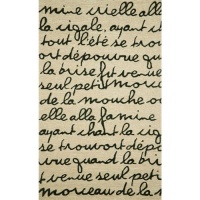 mine vielle alla
la cigale, ayant
tout l'été se trouv
ort dépourvue qu
la brise fut venue
seul petit mor
de la mouche ou
elle alla famine
ayant chant la cig
se trouvort dépo
vue quand la bri
t venue seul peti
morceau de la